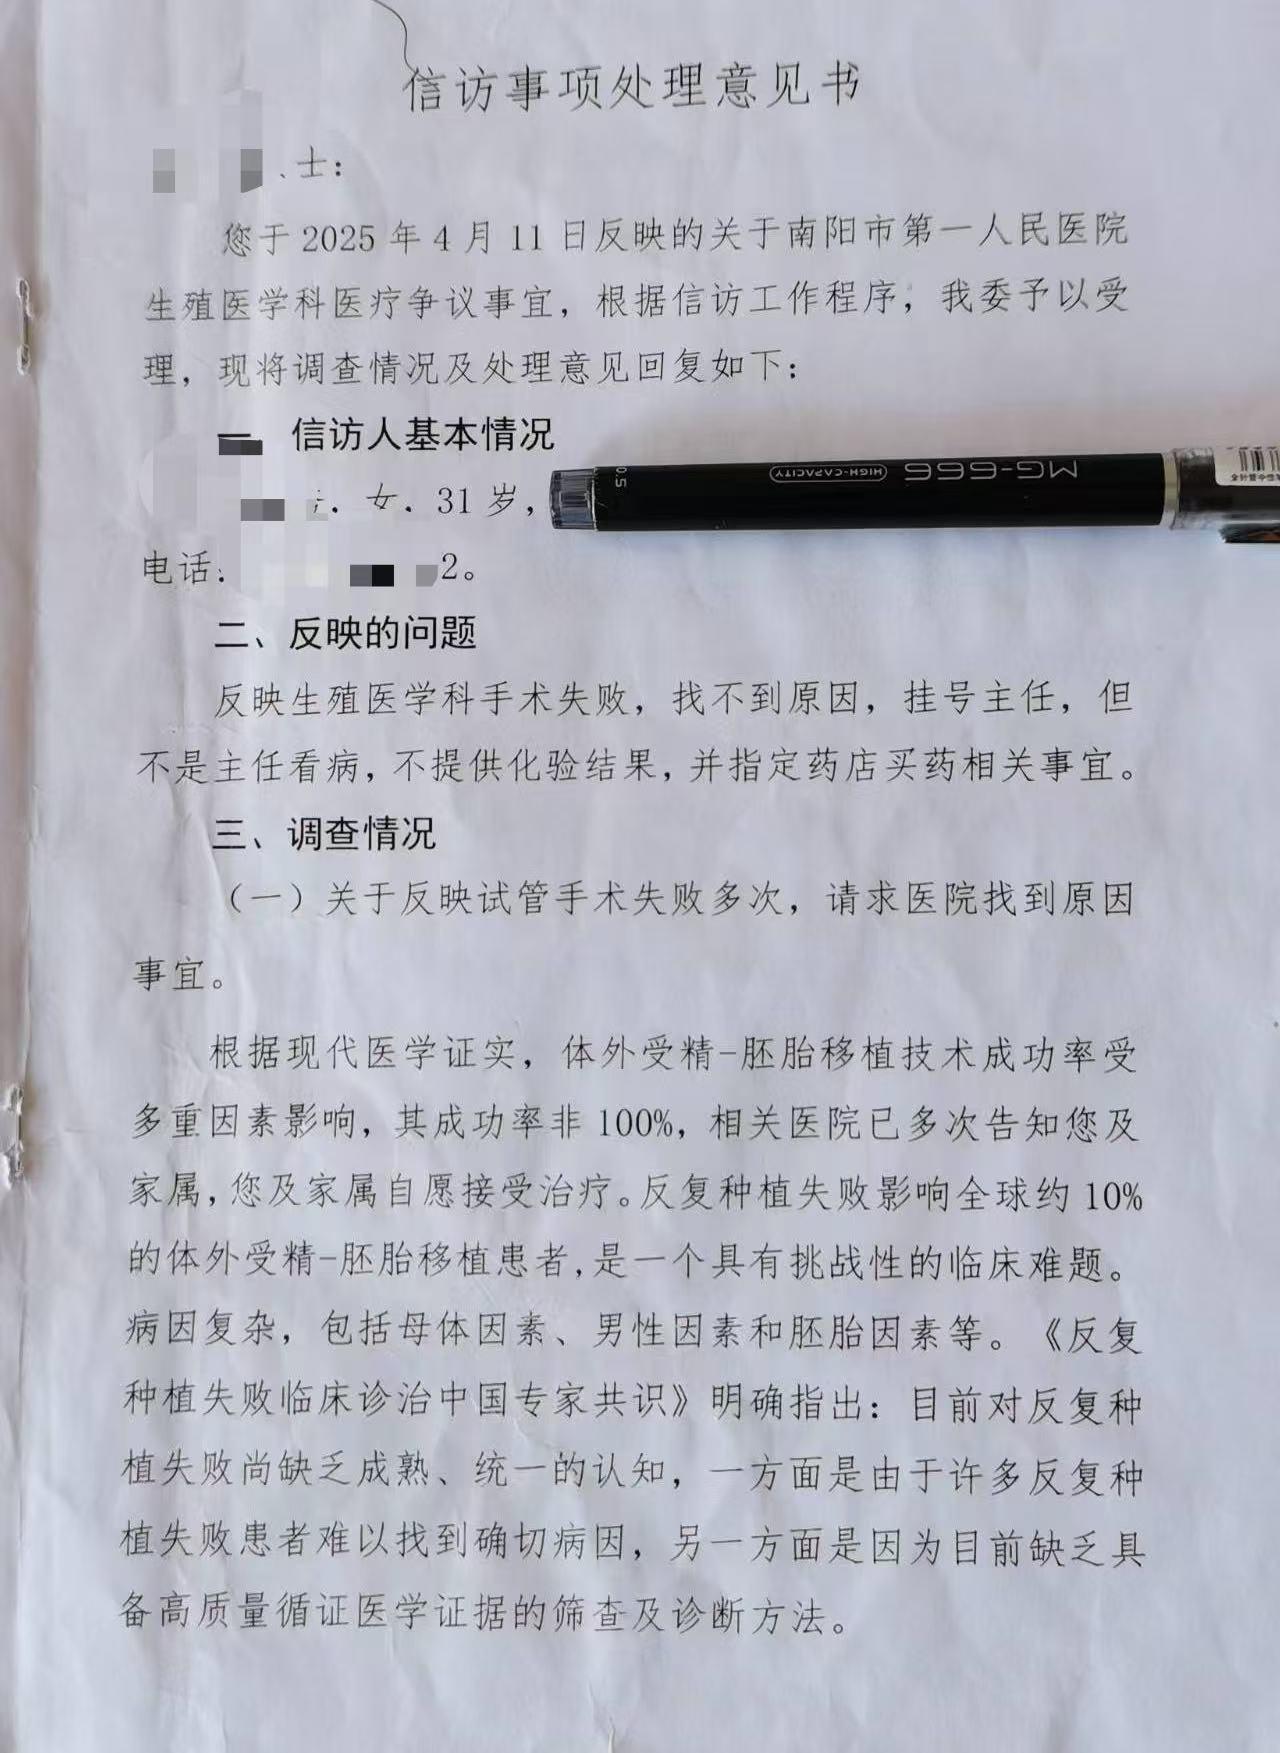 信访事项处理意见书
士：
您于 2025 年 4 月 11 日反映的关于南阳市第一人民医院
生殖医学科医疗争议事宜，根据信访工作程序，我委予以受
理，现将调查情况及处理意见回复如下：
一、信访人基本情况
女，31 岁，
0.5 HIGH-CAPACITY MG-666
电话： 2。
二、反映的问题
反映生殖医学科手术失败，找不到原因，挂号主任，但
不是主任看病，不提供化验结果，并指定药店买药相关事宜。
三、调查情况
（一）关于反映试管手术失败多次，请求医院找到原因
事宜。
根据现代医学证实，体外受精-胚胎移植技术成功率受
多重因素影响，其成功率非 100%，相关医院已多次告知您及
家属，您及家属自愿接受治疗。反复种植失败影响全球约 10%
的体外受精-胚胎移植患者，是一个具有挑战性的临床难题。
病因复杂，包括母体因素、男性因素和胚胎因素等。《反复
种植失败临床诊治中国专家共识》明确指出：目前对反复种
植失败尚缺乏成熟、统一的认知，一方面是由于许多反复种
植失败患者难以找到确切病因，另一方面是因为目前缺乏具
备高质量循证医学证据的筛查及诊断方法。